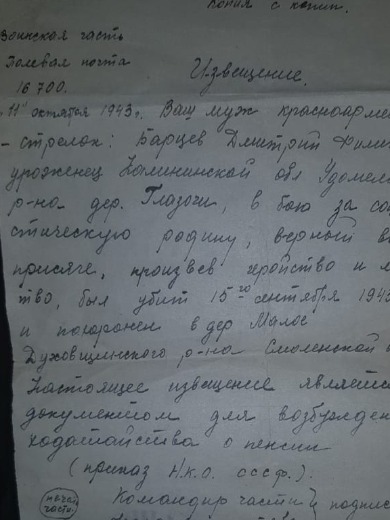 Копия с копии.
Воинская часть
Полевая почта
16700.
Извещение.
11 октября 1943г. Ваш муж красноарме
- стрелок: Барцев Дмитрий Фили
уроженец Калининской обл Удомел
р-на дер. Глазачи, в бою за со
стическую родину, верный во
присяге, проявив геройство и м
тво, был убит 15го сентября 194
и похоронен в дер Малое
Духовщинского р-на Смоленской
Настоящее извещение являетс
документом для возбужден
ходатайства о пенсии
(приказ Н.К.О. СССР.).
печать части
Командир части подпис